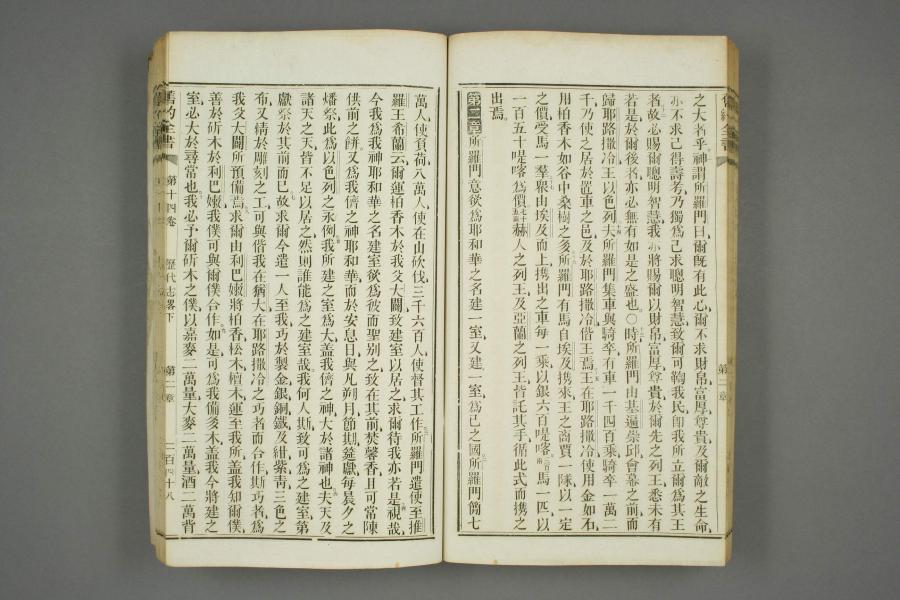 之大者乎神謂所羅門曰爾既有此心爾不求財帛富厚尊貴及爾敵之生命
亦不求己得壽考乃獨爲己求聰明智慧致爾可鞫我民卽我所立爾爲其王
者故必賜爾聰明智慧我亦將賜爾以財帛富厚尊貴於爾先之列王悉未有
若是於爾後者亦必無有如是之盛也〇時所羅門由基遍崇邱會幕之前而
歸耶路撒冷王以色列夫所羅門集車與騎卒有車一千四百乘騎卒一萬二
千乃使之居於置車之邑及於耶路撒冷偕王焉王在耶路撒冷使用金如石
用柏香木如谷中桑樹之多所羅門有馬自埃及携來王之商賈一隊以一定
之價受馬一羣衆由埃及而上携出之車每一乘以銀六百㖷喀馬一匹以
一百五十㖷喀爲價赫人之列王及亞蘭之列王皆託其手循此式而携之
出焉
第二章所羅門意欲爲耶和華之名建一室又建一室爲己之國所羅門簡七
萬人使負荷八萬人使在山砍伐三千六百人使督其工作所羅門遣使至推
羅王希蘭云爾運柏香木於我父大闢致建室以居之求爾待我亦若是視哉
今我爲我神耶和華之名建室欲爲彼而聖别之致在其前焚馨香且可常陳
供前之餅又爲我儕之神耶和華而於安息日與凡朔月節期筵獻每晨夕之
燔祭此爲以色列之永例我所建之室爲大蓋我儕之神大於諸神也夫天及
諸天之天皆不足以居之然則誰能爲之建室哉我何人斯致可爲之建室第
獻祭於其前而已故求爾今遣一人至我巧於製金銀銅鐵及紺紫靑三色之
布又精於雕刻之工可與偕我在猶大在耶路撒冷之巧者而合作斯巧者爲
我父大闢所預備焉求爾由利巴嫩將柏香松木檀木運至我所蓋我知爾僕
善於斫木於利巴嫩我僕可與爾僕合作如是可爲我備多木蓋我今將建之
室必大於尋常也我必予爾斫木之僕以嘉麥二萬量大麥二萬量酒二萬背
舊約全書
第十四卷
歷代志畧下
第二章
二百四十八